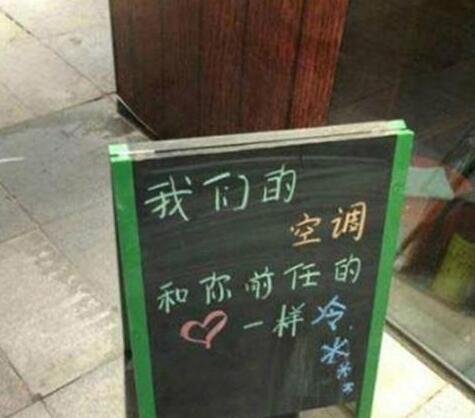 我们的
空调
和你前任的
❤一样冷